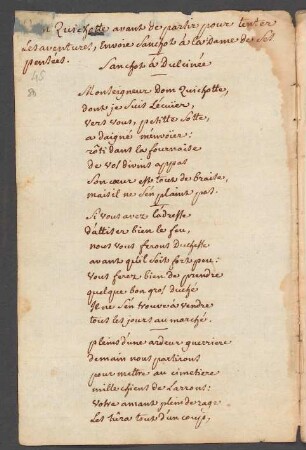 Quichotte avant de partir pour tenter
Les aventures, Envoie Sanchot à la dame de ses
pensées.
45
Sanchot à Dulcinée
Monseigneur dom Quichotte,
dont je suis L'écuier,
vers vous, petitte sotte,
a daigné m'envoier:
rôti dans la fournaise
de vos divins appas
Son cœur est tout de braise,
mais il ne s'en plaint pas.
Si vous avez l'adresse
d'attiser bien le feu,
nous vous ferons duchesse
avant qu'il soit fort peu:
Vous ferez bien de prendre
quelque bon gros duché
Il ne s'en trouve à vendre
tous les jours au marché.
pleins d'une ardeur guerriere
demain nous partirons
pour mettre au cimetiere
mille chiens de Larrons:
Votre amant plein de rage
Les tûra tout d'un coup.